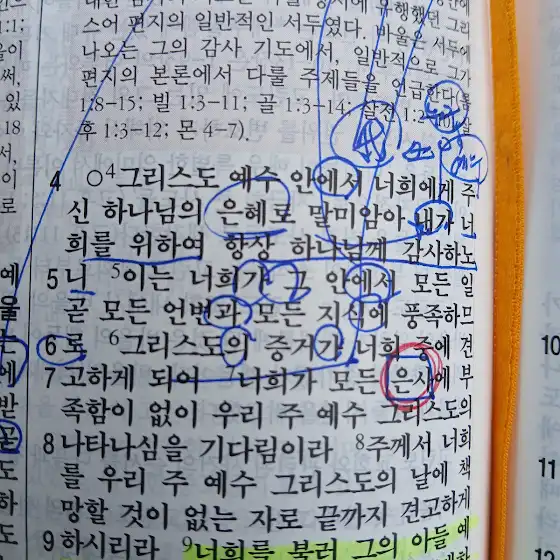 스어 편지의 일반적인 서두였다. 바울은 서두에
나오는 그의 감사 기도에서, 일반적으로 그가
편지의 본론에서 다룰 주제들을 언급한다(롬
1:8-15; 빌 1:3-11; 골 1:3-14; 살전 1:2
후 1:3-12; 몬 4-7).
4 ○4그리스도 예수 안에서 너희에게 주
신 하나님의 은혜로 말미암아 내가 너
희를 위하여 항상 하나님께 감사하노
5 니 5이는 너희가 그 안에서 모든 일
곧 모든 언변과 모든 지식에 풍족하므
6 로 6그리스도의 증거가 너희 중에 견
7 고하게 되어 너희가 모든 은사에 부
족함이 없이 우리 주 예수 그리스도의
8 나타나심을 기다림이라 8주께서 너희
를 우리 주 예수 그리스도의 날에 책
망할 것이 없는 자로 끝까지 견고하게
9 하시리라 9너희를 불러 그의 아들 예
10
11